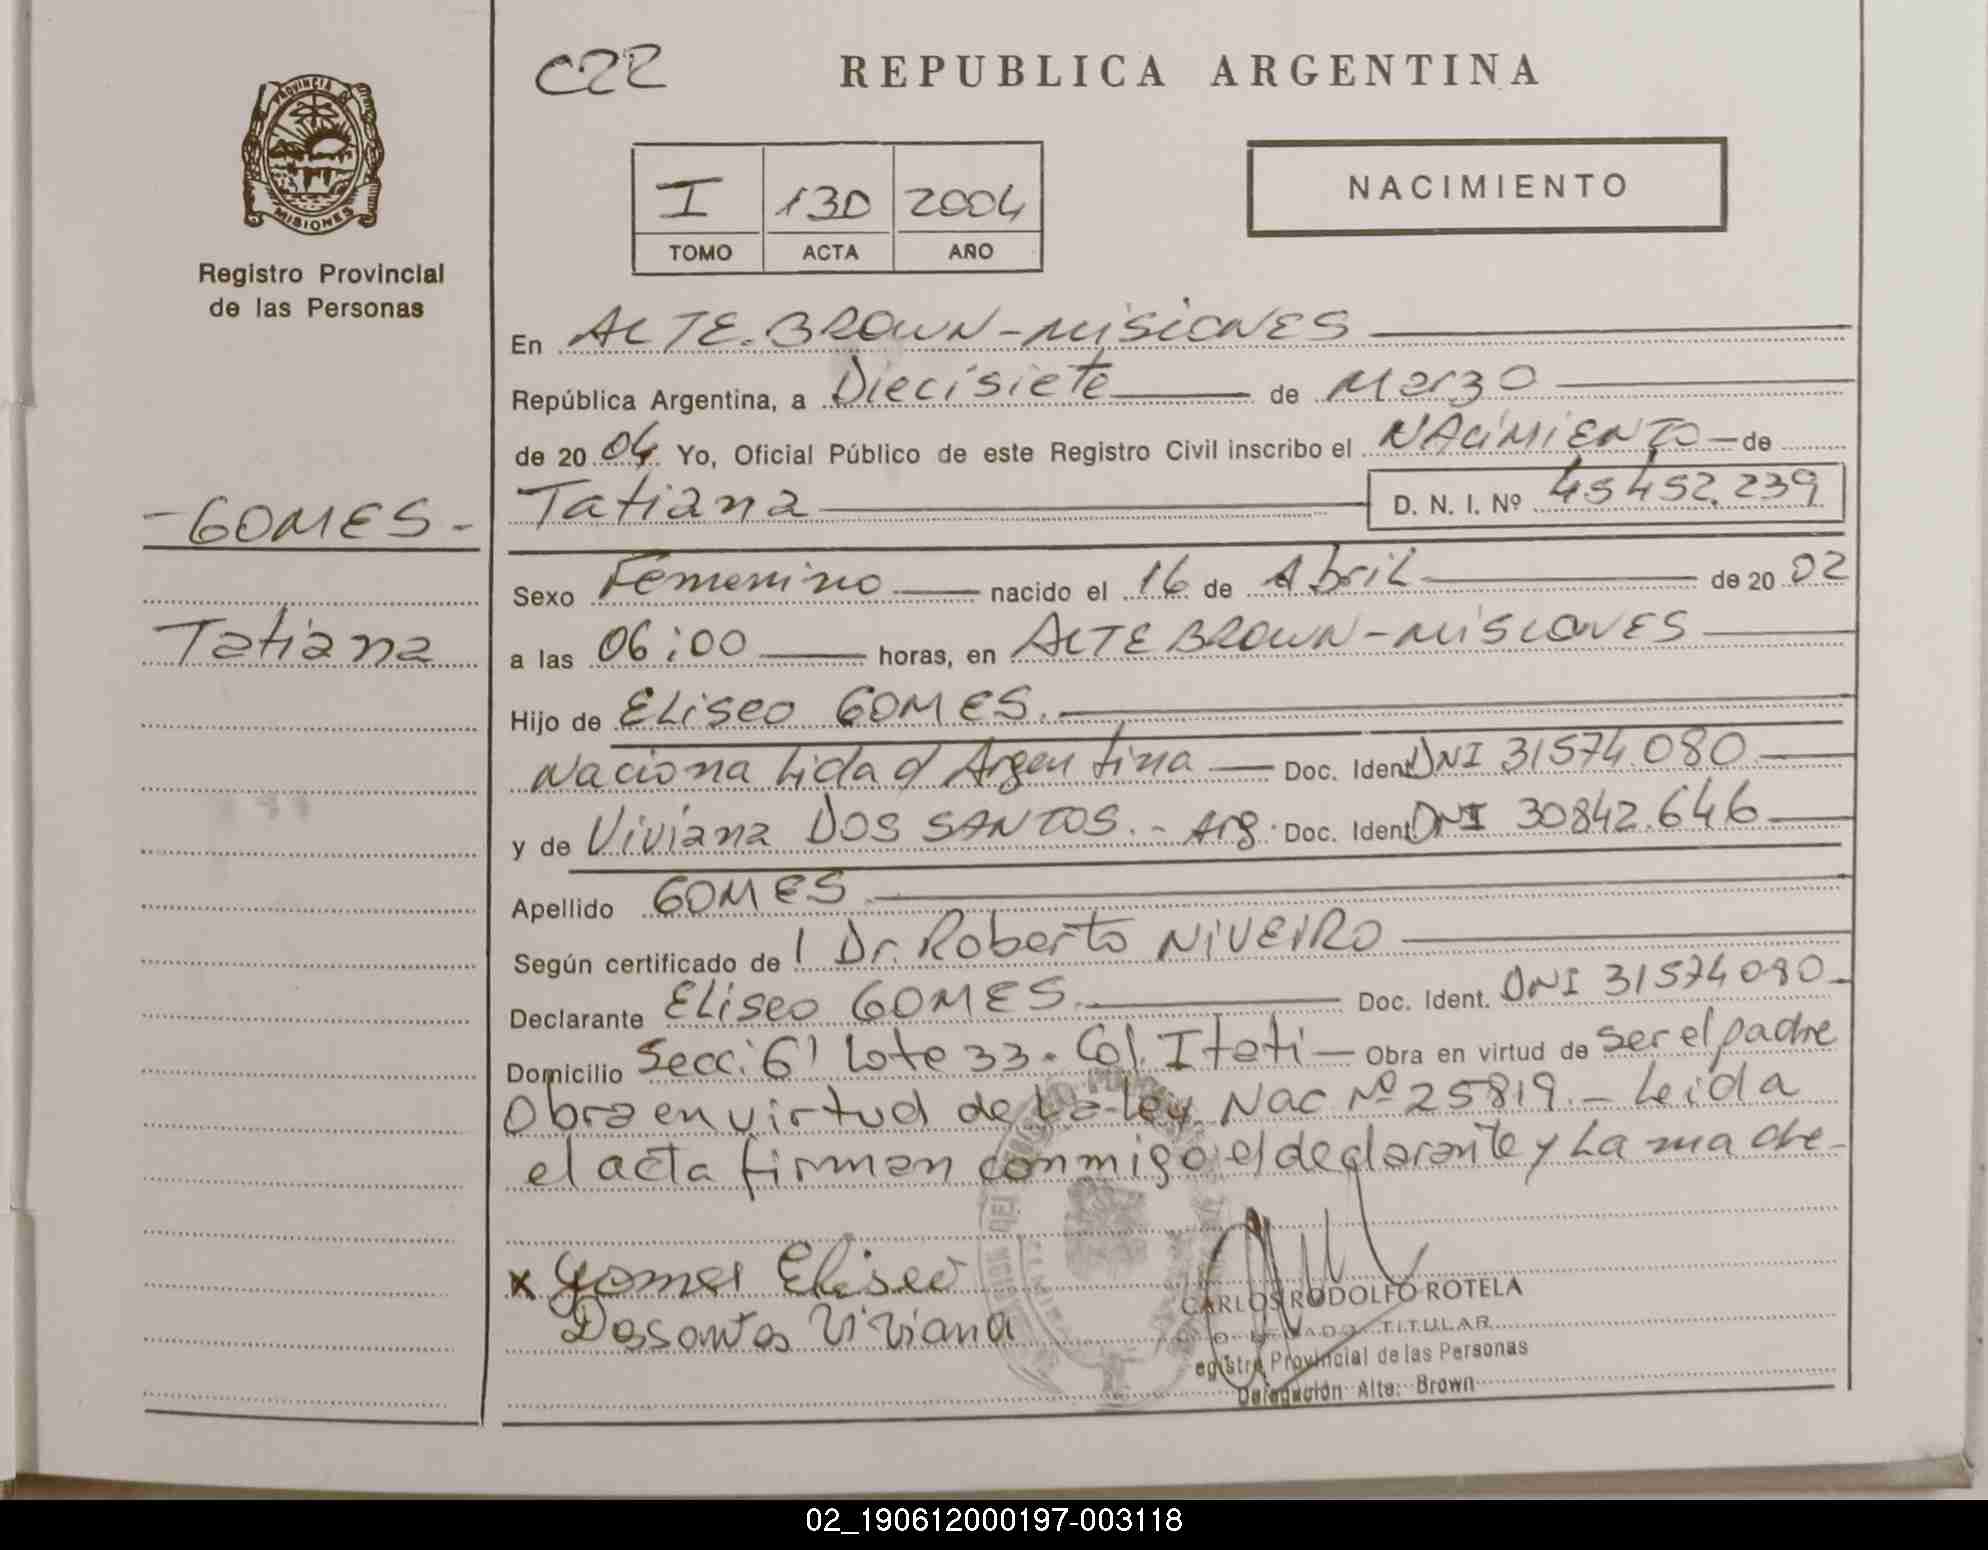 C22
REPUBLICA ARGENTINA
PROVINCIA DE
MISIONES
Registro Provincial
de las Personas
I 130 2004
TOMO ACTA AÑO
NACIMIENTO
En ALTE. BROWN - MISIONES
República Argentina, a Diecisiete de Marzo
de 2004 Yo, Oficial Público de este Registro Civil inscribo el NACIMIENTO de
- GOMES - Tatiana D. N. I. Nº 45452.239
Sexo Femenino nacido el 16 de Abril de 2002
Tatiana a las 06:00 horas, en ALTE BROWN - MISIONES
Hijo de Eliseo GOMES.
Nacionalidad Argentina Doc. Ident DNI 31574.080
y de Viviana DOS SANTOS. - Arg. Doc. Ident DNI 30842.646
Apellido GOMES
Según certificado de Dr. Roberto NIVEIRO
Declarante Eliseo GOMES. Doc. Ident. DNI 31574080
Domicilio Secc: 6 Lote 33. Col. Itati Obra en virtud de ser el padre
Obra en virtud de La ley Nac Nº 25819. - Leida
el acta firman conmigo el declarante y La madre -
x Gomes Eliseo
Dosantos Viviana
CARLOS RODOLFO ROTELA
TITULAR
egistro Provincial de las Personas
Delegación Alte. Brown
02_190612000197-003118